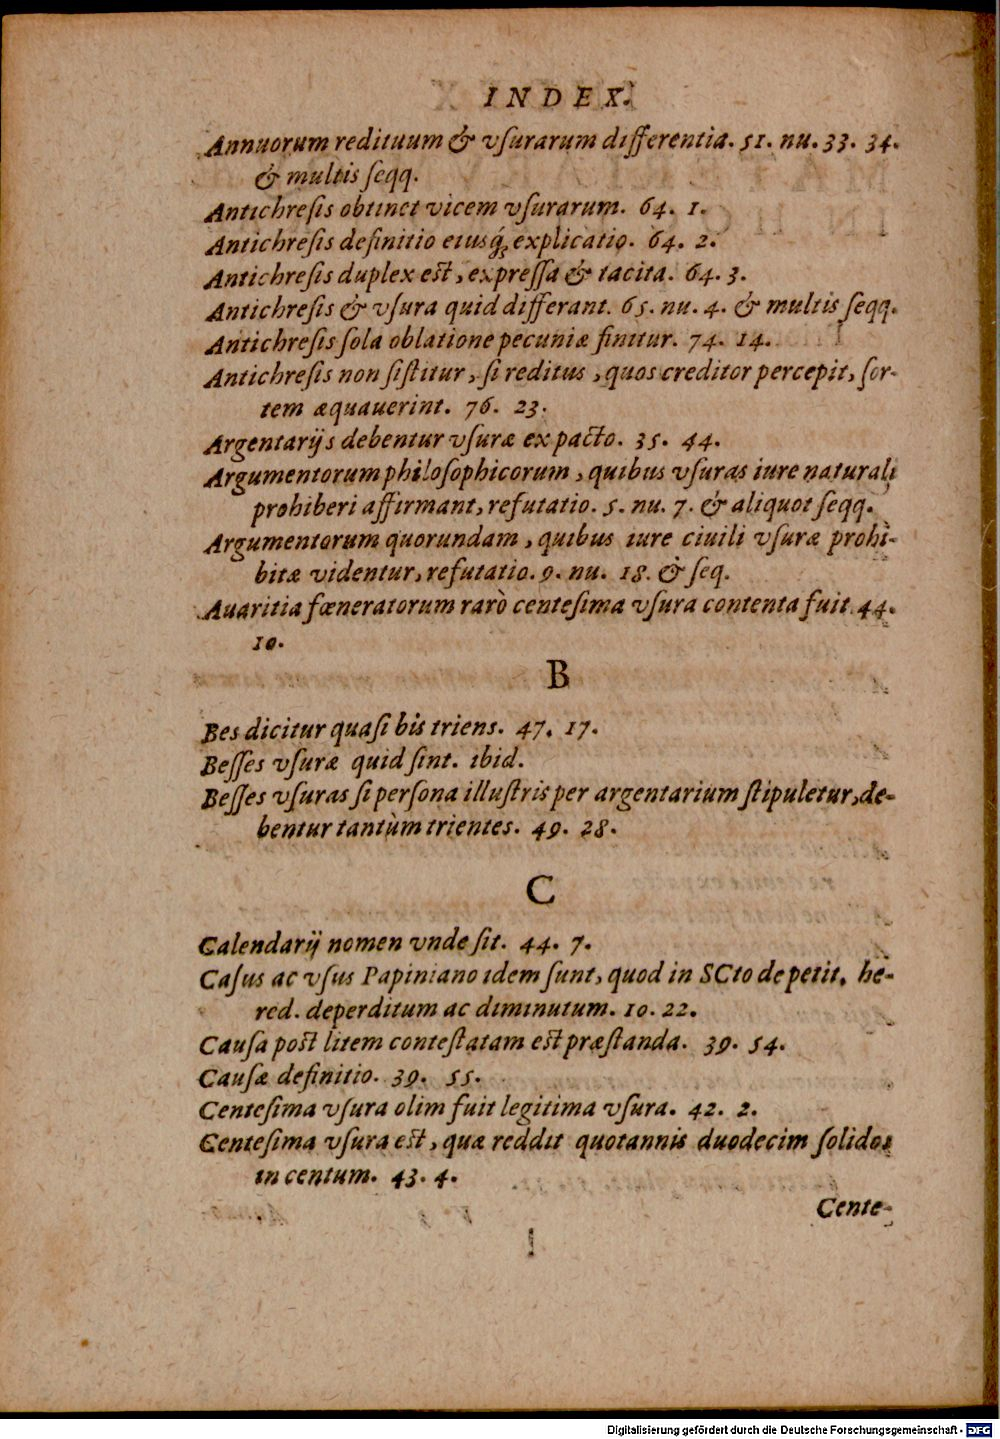 INDEX.
Annuorum redituum & vſurarum differentia. 51. nu. 33. 34.
& multis ſeqq.
Antichreſis obtinet vicem vſurarum. 64. 1.
Antichreſis definitio eiusq́; explicatio. 64. 2.
Antichreſis duplex est, expreſſa & tacita. 64. 3.
Antichreſis & vſura quid differant. 65. nu. 4. & multis ſeqq.
Antichreſis ſola oblatione pecuniæ finitur. 74. 14.
Antichreſis non ſiſtitur, ſi reditus, quos creditor percepit, ſor-
tem æquauerint. 76. 23.
Argentarijs debentur vſuræ ex pacto. 35. 44.
Argumentorum philoſophicorum, quibus vſuras iure naturali
prohiberi affirmant, refutatio. 5. nu. 7. & aliquot ſeqq.
Argumentorum quorundam, quibus iure ciuili vſuræ prohi-
bitæ videntur, refutatio. 9. nu. 18. & ſeq.
Auaritia fœneratorum rarò centeſima vſura contenta fuit 44.
10.
B
Bes dicitur quaſi bis triens. 47. 17.
Beſſes vſuræ quid ſint. ibid.
Beſſes vſuras ſi perſona illuſtris per argentarium ſtipuletur, de-
bentur tantùm trientes. 49. 28.
C
Calendarij nomen vnde ſit. 44. 7.
Caſus ac vſus Papiniano idem ſunt, quod in SCto de petit. he-
red. deperditum ac diminutum. 10. 22.
Cauſa post litem conteſtatam est præſtanda. 39. 54.
Cauſæ definitio. 39. 55.
Centeſima vſura olim fuit legitima vſura. 42. 2.
Centeſima vſura est, quæ reddit quotannis duodecim ſolidos
in centum. 43. 4.
Cente-
Digitalisierung gefördert durch die Deutsche Forschungsgemeinschaft - DFG